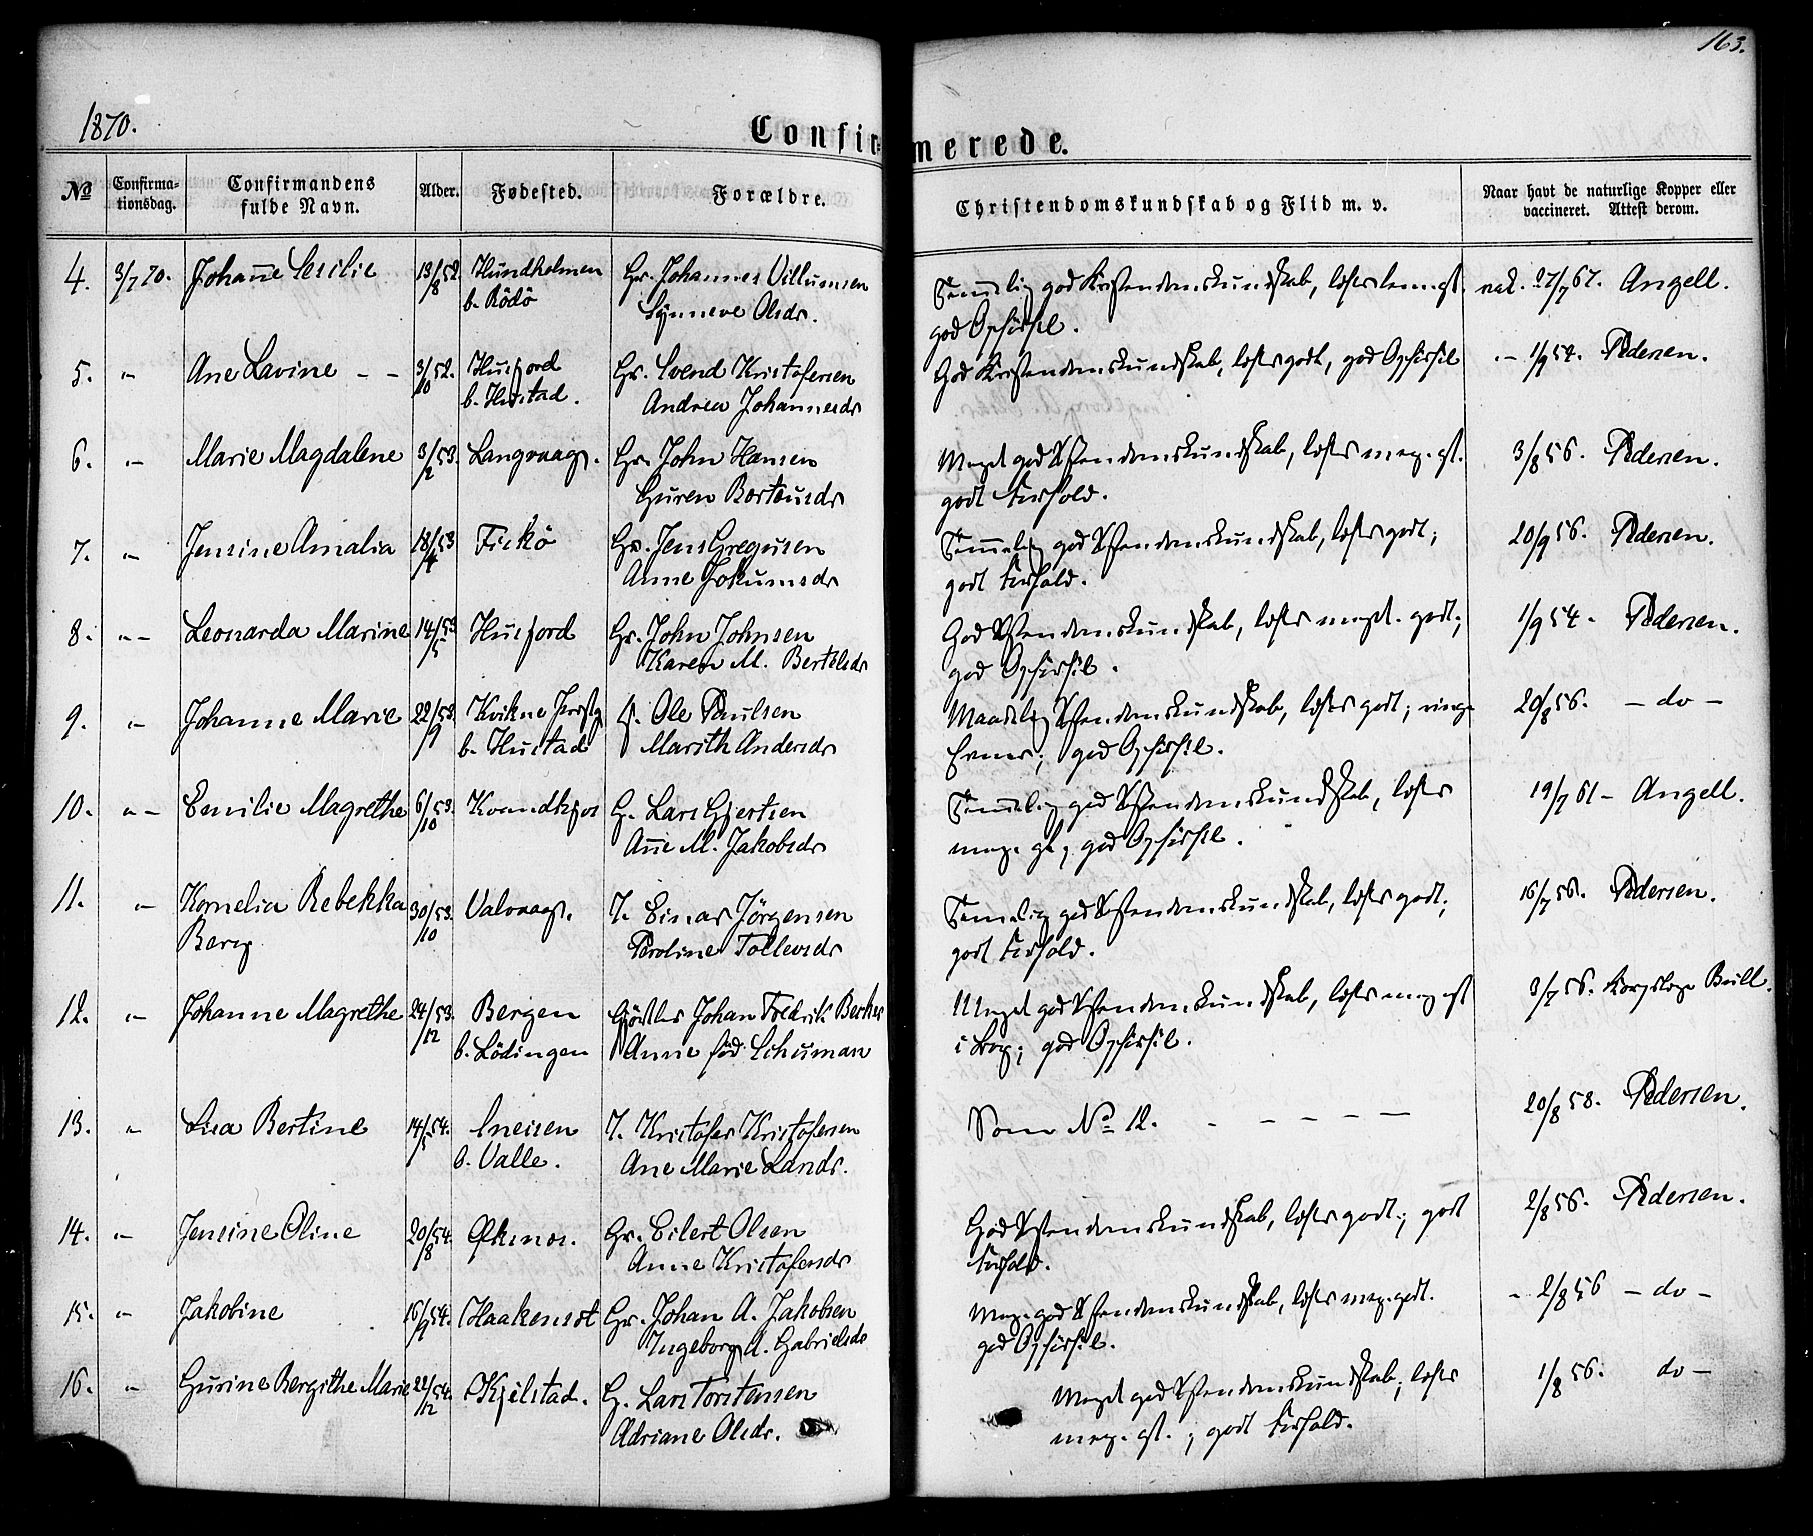 163.
1870.
Confirmerede.
№ Confirmationsdag. Confirmandens fulde Navn. Alder. Fødested. Forældre. Christendomskundskab og Flid m. v. Naar havt de naturlige Kopper eller vaccineret. Attest derom.
4. 3/7 70. Johanne Cecilie 13/8 52. Hundholmen Gr. Johannes Villumsen Temmelig god Kristendomskundskab, læser temmel. gt. vak. 27/7 67. Angell.
b. Rödö Synneve Olsdr. god Opförsel.
5. " Ane Lavine 3/10 52. Husfjord Gr. Svend Kristofersen God Kristendomskundskab, læser godt, god Opförsel - 1/9 54. Pedersen.
b. Hustad. Andrea Johannesdr
6. " Marie Magdalene 3/2 53. Langvaag. Gr. John Hansen Meget god Xstendomskundskab, læser meg. gt. 3/8 56. Pedersen.
Guren Borteusdr godt Forhold.
7. " Jensine Amalia 18/4 53 Fickö Gr. Jens Gregusen Temmelig god Xstendomskundskab, læser godt; 20/9 56. Pedersen.
Anne Jokumsdr godt Forhold.
8. " Leonarda Marine 14/5 53 Husfjord Gr. John Johnsen God Xstendomskundskab, læser meget godt; 1/9 54. Pedersen.
Karen M. Bertelsdr god Opförsel.
9. " Johanne Marie 22/9 53. Kvikne Prestg Ole Paulsen Maadelig Xstendomskundskab, læser godt; ringe 20/8 56. - do -
b. Hustad Marith Andersdr Evner; god Opförsel.
10. " Emilie Magrethe 6/10 53. Kvandkjos G. Lars Gjertsen Temmelig god Xstendomskundskab, læser 19/7 61 - Angell.
Anne M. Jakobsdr meg. gt, god Opförsel.
11. " Kornelia Rebekka 30/10 53. Valvaag. I. Einar Jörgensen Temmelig god Xstendomskundskab, læser godt; 16/7 56. Pedersen.
Berg Peroline Tollevsdr godt Forhold.
12. " Johanne Magrethe 24/12 53. Bergen Gjörtler Johan Fredrik Berker Meget god Xstendomskundskab, læser meg gt 3/7 56. Korpslæge Bull.
b. Lödingen Anne föd Schuman i Bog; god Opförsel.
13. " Lisa Bertine 14/5 54. Sneisen I. Kristofer Kristofersen Som No 12. - - - - 20/8 58. Pedersen.
b. Valle. Ane Marie Larsdr.
14. " Jensine Oline 20/8 54. Öksnes. Gr. Eilert Olsen God Xstendomskundskab, læser godt; godt 2/8 56. Pedersen.
Anne Kristofersdr Forhold.
15. " Jakobine 16/9 54. Haakensöt Gr. Johan A. Jakobsen Meg. god Xstendomskundskab, læser meg. godt. - 2/8 56 - do -
Ingeborg A. Gabrielsdr god Opförsel.
16. " Gurine Bergithe Marie 22/12 54. Kjelstad. G. Lars Torstensen Meget god Xstendomskundskab; læser 1/8 56. do -
Adriane Olsdr. meg. gt.; godt Forhold.